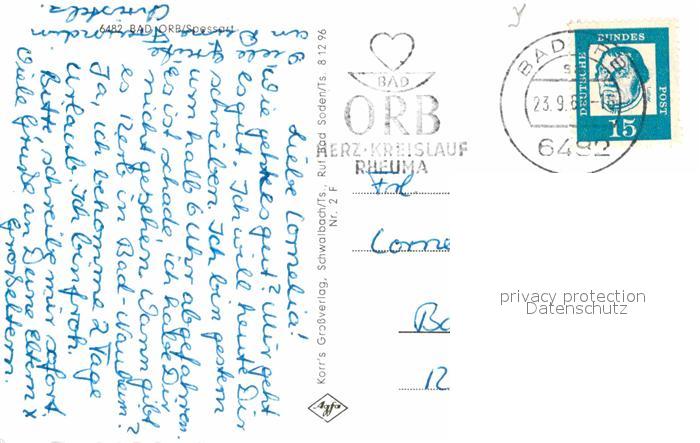 6482 BAD ORB/Spessart
Liebe Cornelia!
Wie geht es gut? Mir geht
es gut. Ich will heute Dir
schreiben. Ich bin gestern
um halb 6 Uhr abgefahren.
Es ist schade ich habe Dir
nicht gesehen. Wann gibt
es in Bad-Nauheim?
Ja, ich bekomme 2 Tage
Urlaub. Ich bin froh.
Bitte schreibe mir sofort.
Viele Grüße an Deine Eltern x
Großeltern.
Christel
Korr's Großverlag, Schwalbach/Ts., Ruf Bad Soden/Ts. 8 12 96
Nr. 2 F
Agfa
BAD
ORB
HERZ-KREISLAUF
RHEUMA
BAD ORB
23.9.6
6482
DEUTSCHE BUNDESPOST
15
Frl
Corne
Ba
privacy protection
Datenschutz